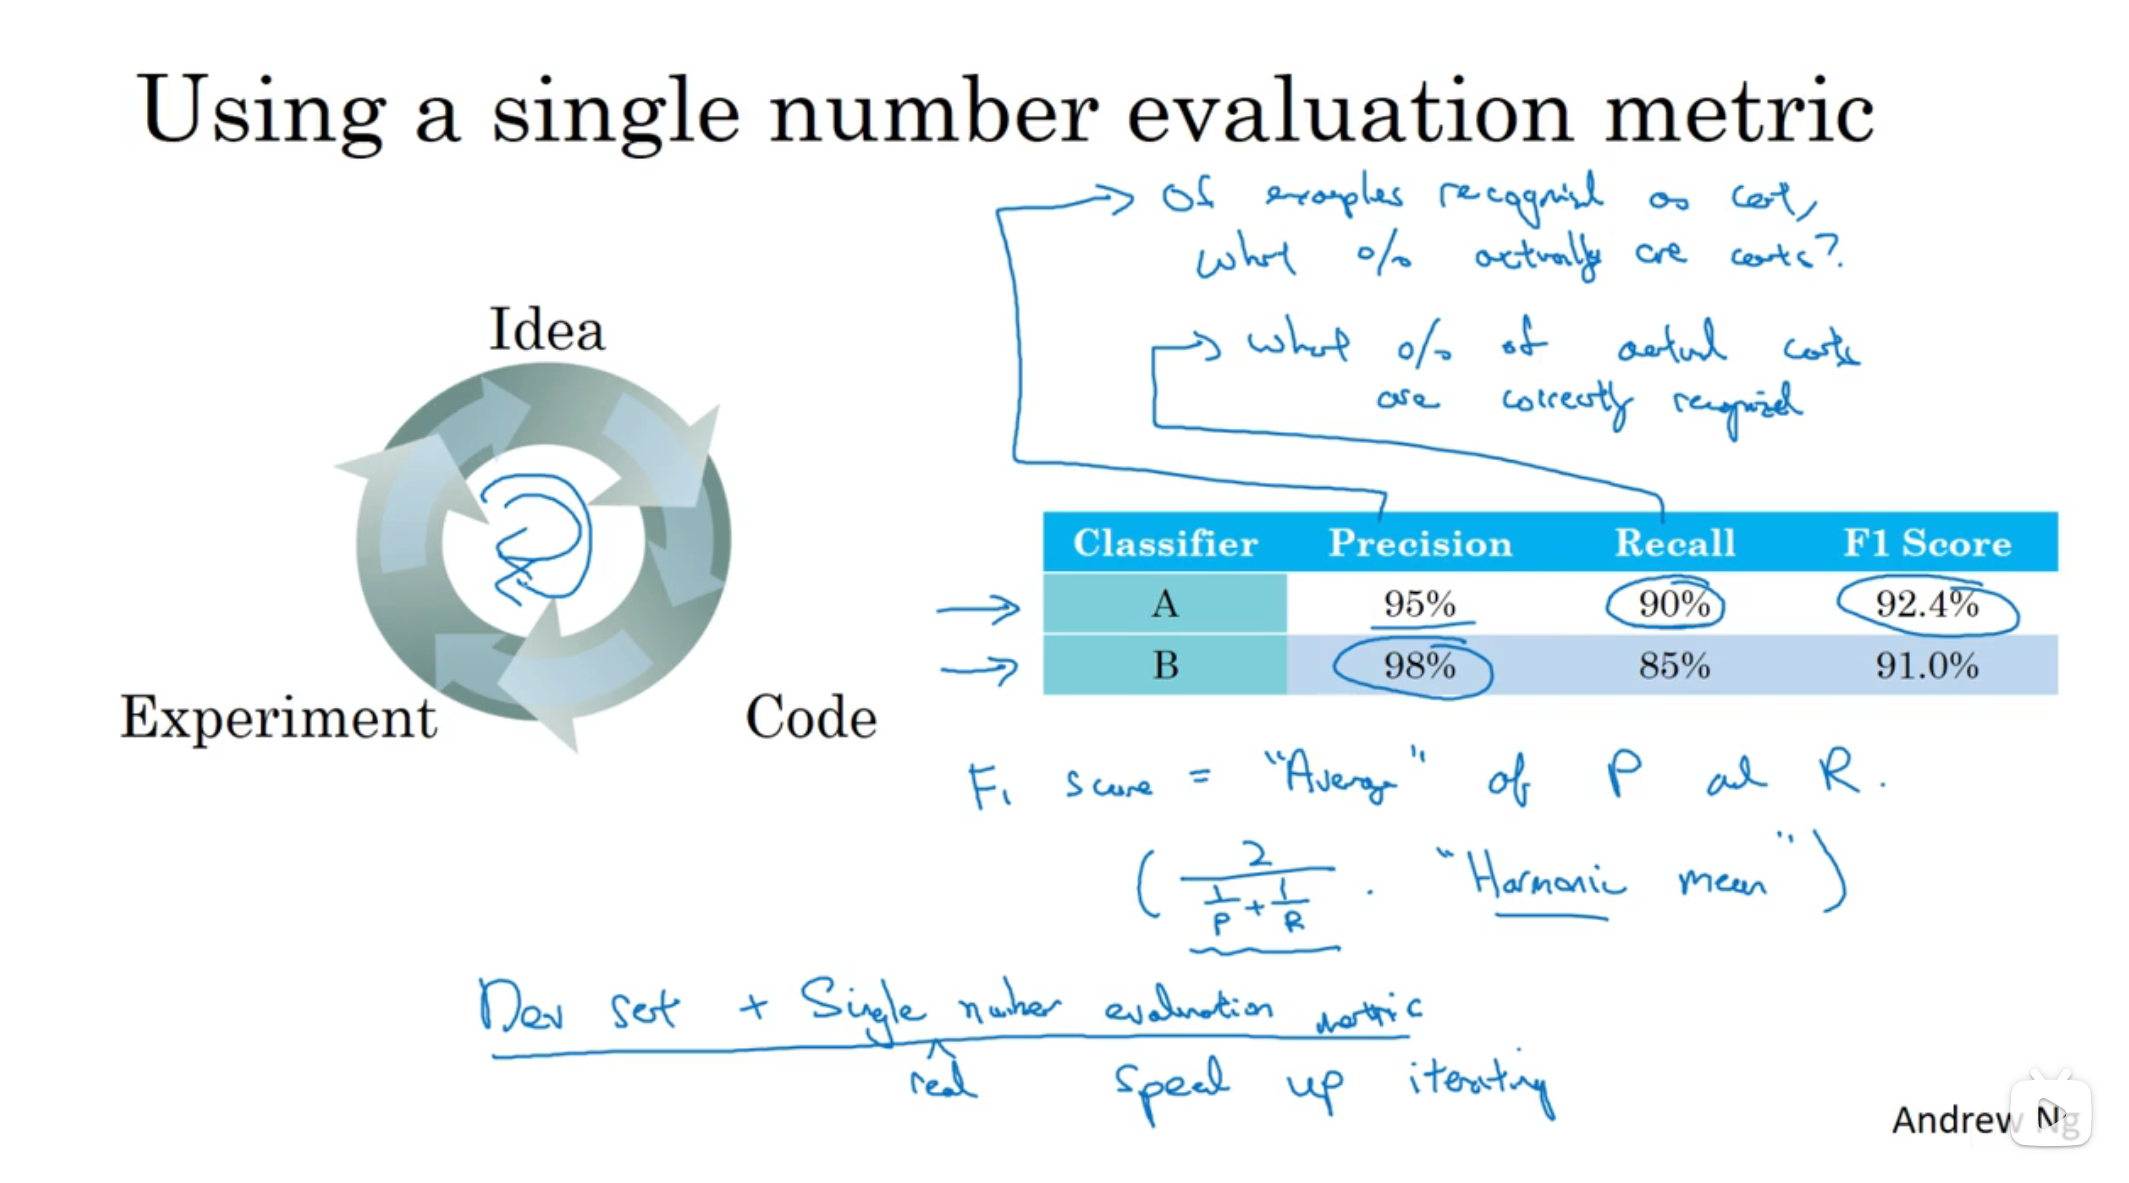 Using a single number evaluation metric
Of examples recognized as cat,
what % actually are cats?
what % of actual cats
are correctly recognized
Idea
Code
Experiment
Classifier Precision Recall F1 Score
A 95% 90% 92.4%
B 98% 85% 91.0%
F₁ score = "Average" of P and R.
( 2 / (1/P + 1/R) . "Harmonic mean" )
Dev set + Single number evaluation metric
real speed up iterating
Andrew Ng